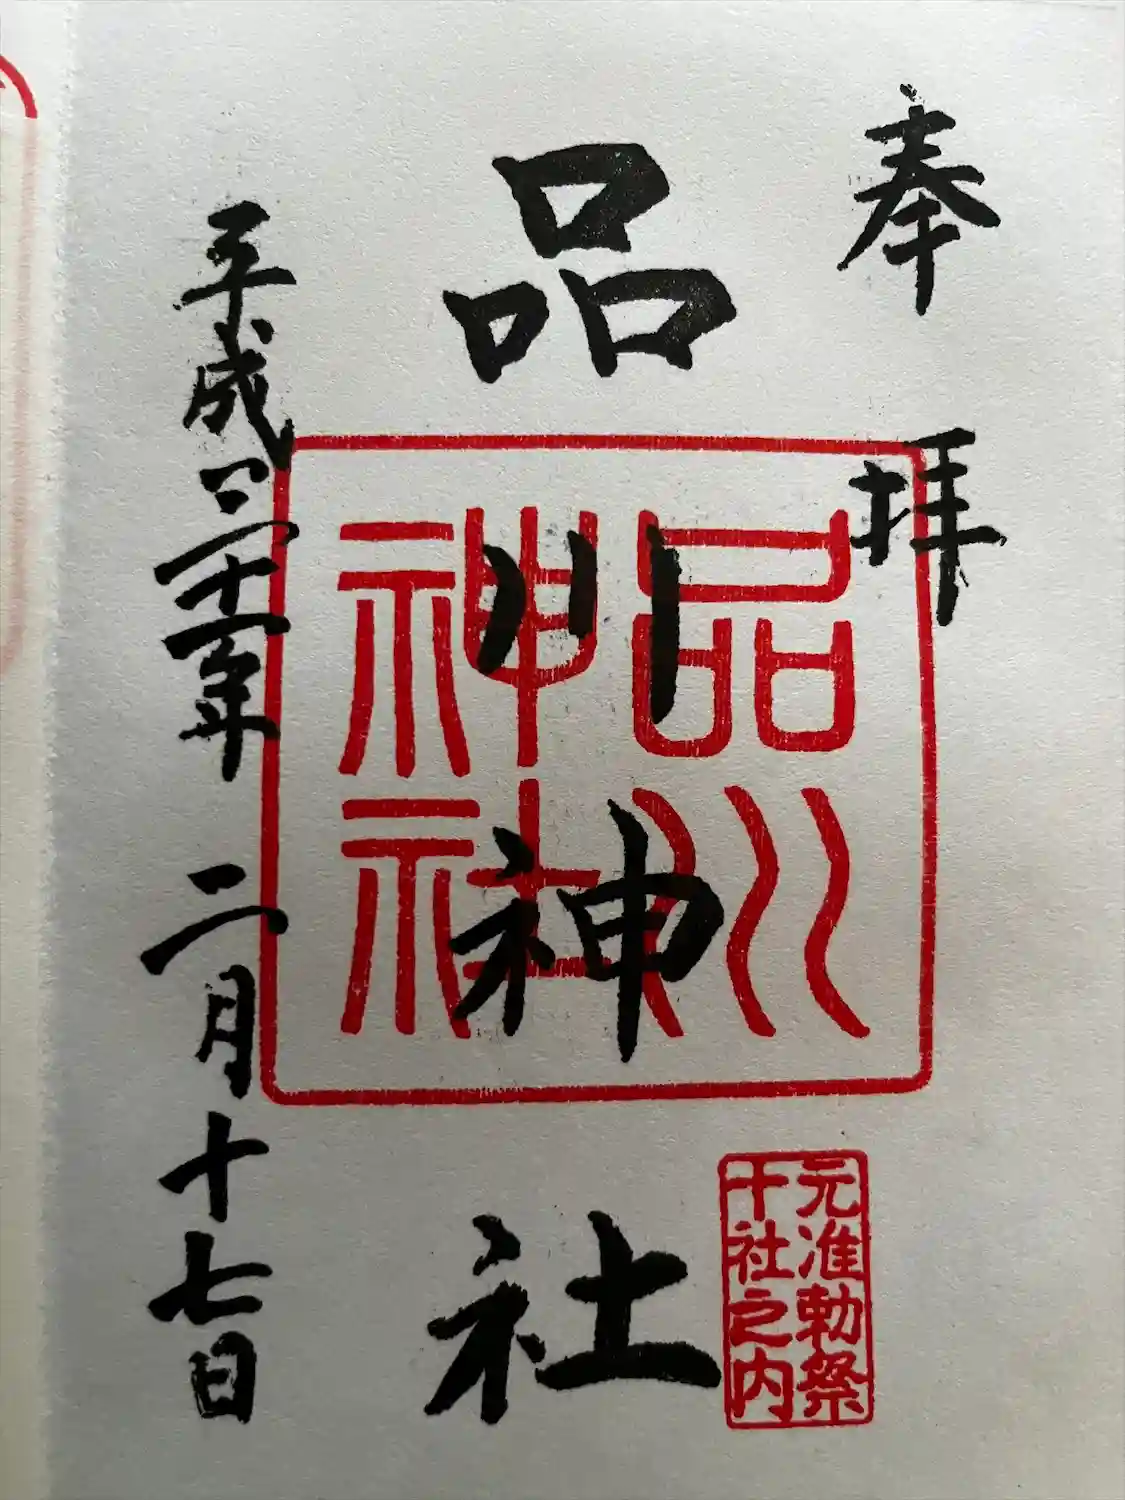 奉拝
品川神社
平成三十一年 二月十七日
品川
神社
元准勅祭
十社之内